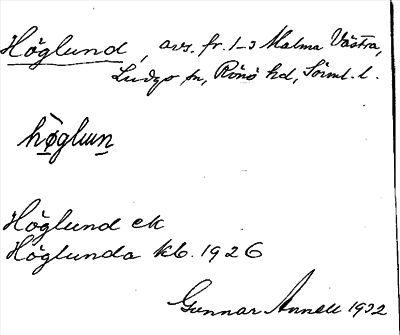 Höglund, avs. fr. 1-3 Malma Västra,
Ludgo sn, Rönö hd, Sörml. l.
hø̀glun
Höglund ek
Höglunda kb. 1926
Gunnar Annell 1932